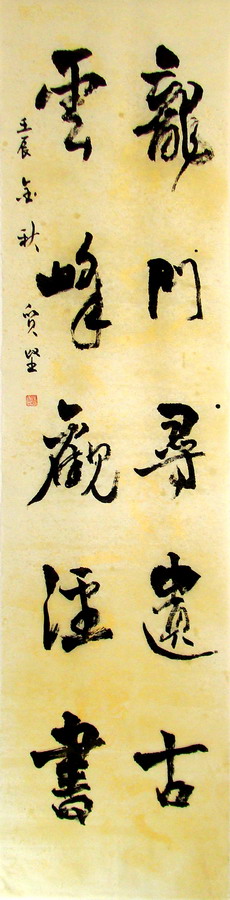 龍門尋遺古
雲峰觀涇書
壬辰金秋賀堅